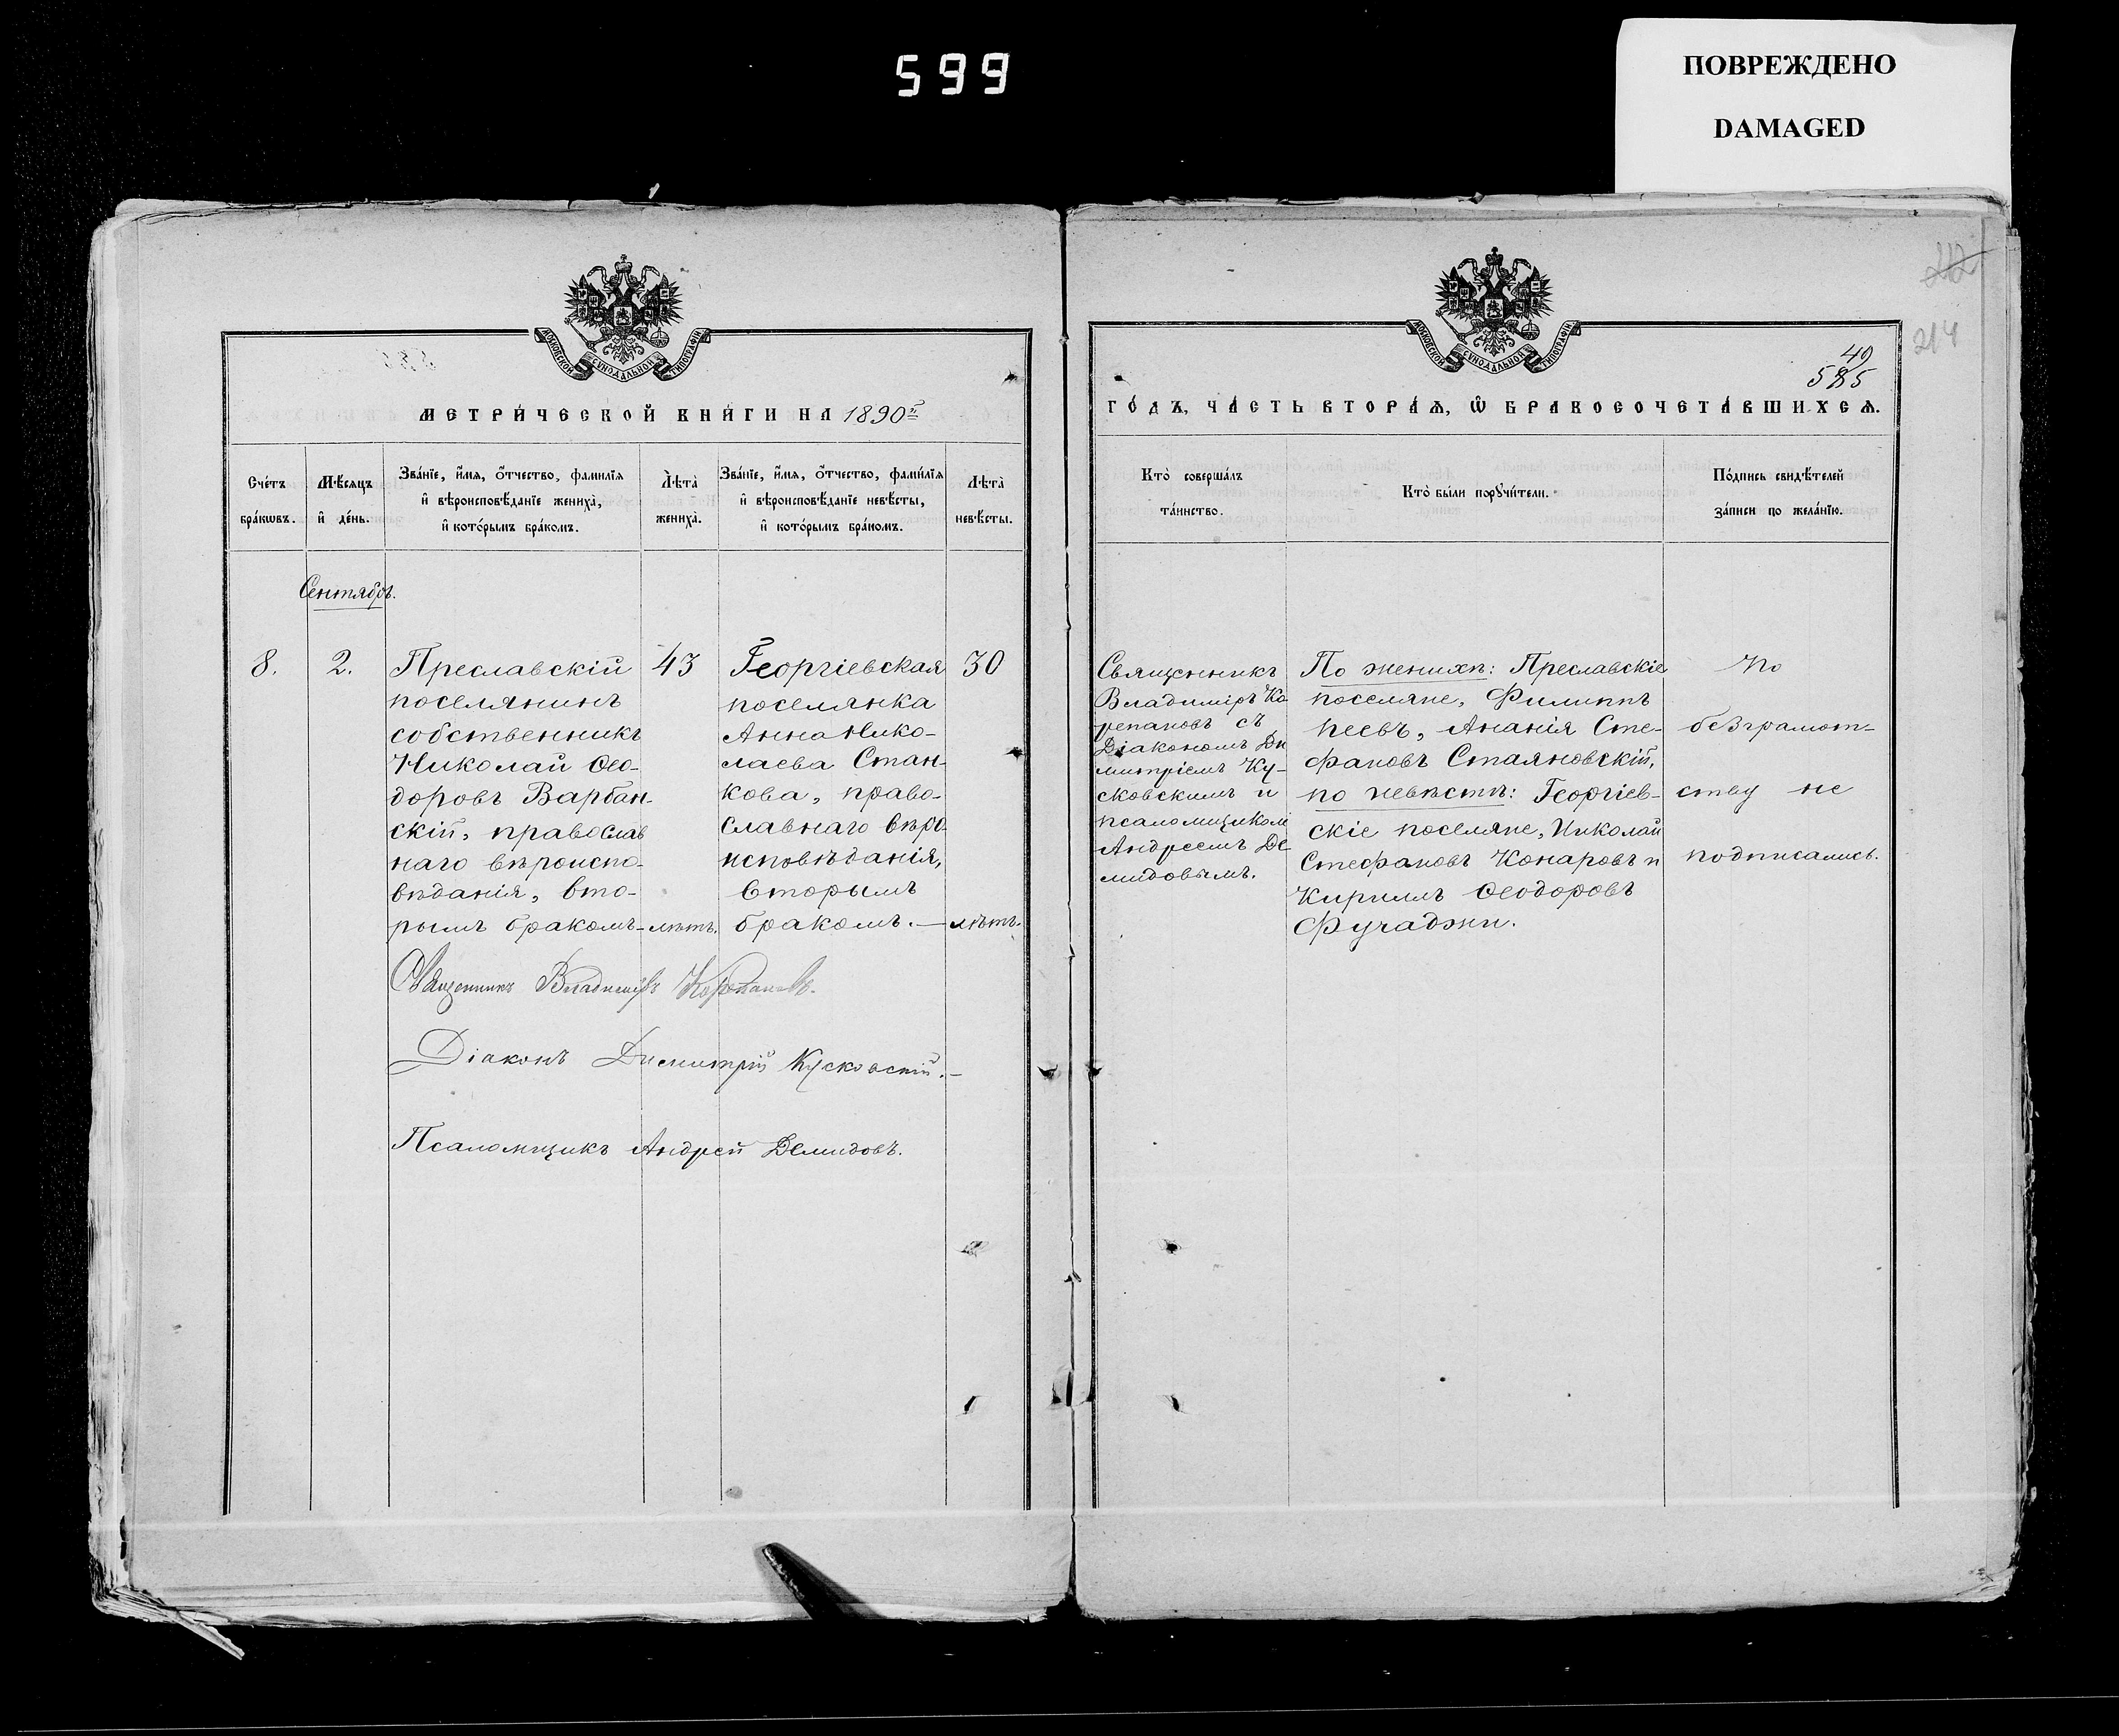 599
ПОВРЕЖДЕНО
DAMAGED
МОСКОВСКОЙ СѴНОДАЛЬНОЙ ТИПОГРАФІИ
МЕТРИ́ЧЕСКОЙ КНИ́ГИ НА 1890й
Сче́тъ
бра́кѡвъ.
Мѣ́сяцъ
и҆ де́нь.
Зва́нїе, и҆́мѧ, ѻ҆́тчество, фамилїѧ
и҆ вѣроисповѣ́данїе жениха̀,
и҆ кото́рымъ бра́комъ.
Лѣ́та̀
жениха̀.
Зва́нїе, и҆́мѧ, ѻ҆́тчество, фами́лїѧ
и҆ вѣроисповѣ́данїе невѣ́сты,
и҆ кото́рымъ бра́комъ.
Лѣ́та̀
невѣ́сты.
Сентябрь.
8.
2.
Преславскій
поселянинъ
собственникъ
Николай Ѳео-
доровъ Варбан-
скій, православ
наго вѣроиспо-
вѣданія, вто-
рымъ бракомъ-
43
лѣтъ.
Георгіевская
поселянка
Анна Нико-
лаева Стан-
кова, право-
славнаго вѣро-
исповѣданія,
вторымъ
бракомъ.—
30
лѣтъ.
Священникъ Владиміръ Карепановъ.
Діаконъ Димитрій Кусковскій.—
Псаломщикъ Андрей Демидовъ.
214
49
МОСКОВСКОЙ СѴНОДАЛЬНОЙ ТИПОГРАФІИ
ГО́ДЪ, ЧА́СТЬ ВТОРА́Ѧ, Ѽ БРАКОСОЧЕТА́ВШИХСѦ.
Кто̀ соверша́лъ
та́инство.
Кто̀ бы́ли порꙋчи́тели.
По́дпись свидѣ́телей
за́писи по жела́нїю.
Священникъ
Владиміръ Ка
репановъ съ
Діакономъ Ди
митріемъ Ку-
сковскимъ и
псаломщиком
Андреемъ Де
мидовымъ.
По женихѣ: Преславскіе
поселяне, Филиппъ
Пеевъ, Ананія Сте-
фановъ Стаяновскій,
по невѣстѣ: Георгіев-
скіе поселяне, Николай
Стефановъ Конаровъ и
Кириллъ Ѳеодоровъ
Фучаджи.
По
безграмот-
ству не
подписались.